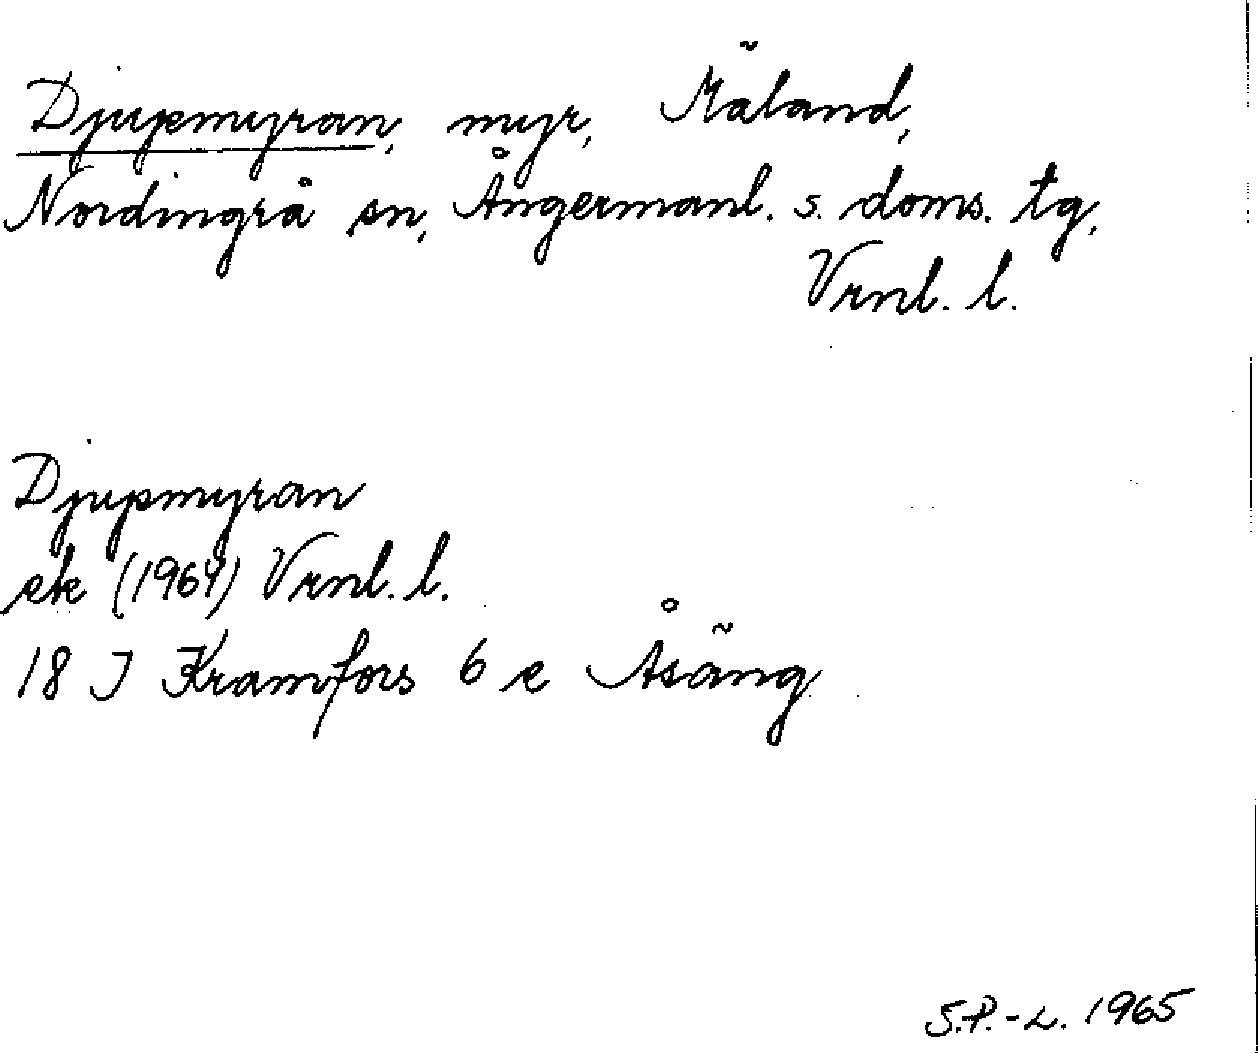 Djupmyran, myr, Mäland,
Nordingrå sn, Ångermanl. s. doms. tg,
Vrnl. l.
Djupmyran
ek (1964) Vrnl. l.
18 J Kramfors 6 e Åsäng
S.P.-L. 1965